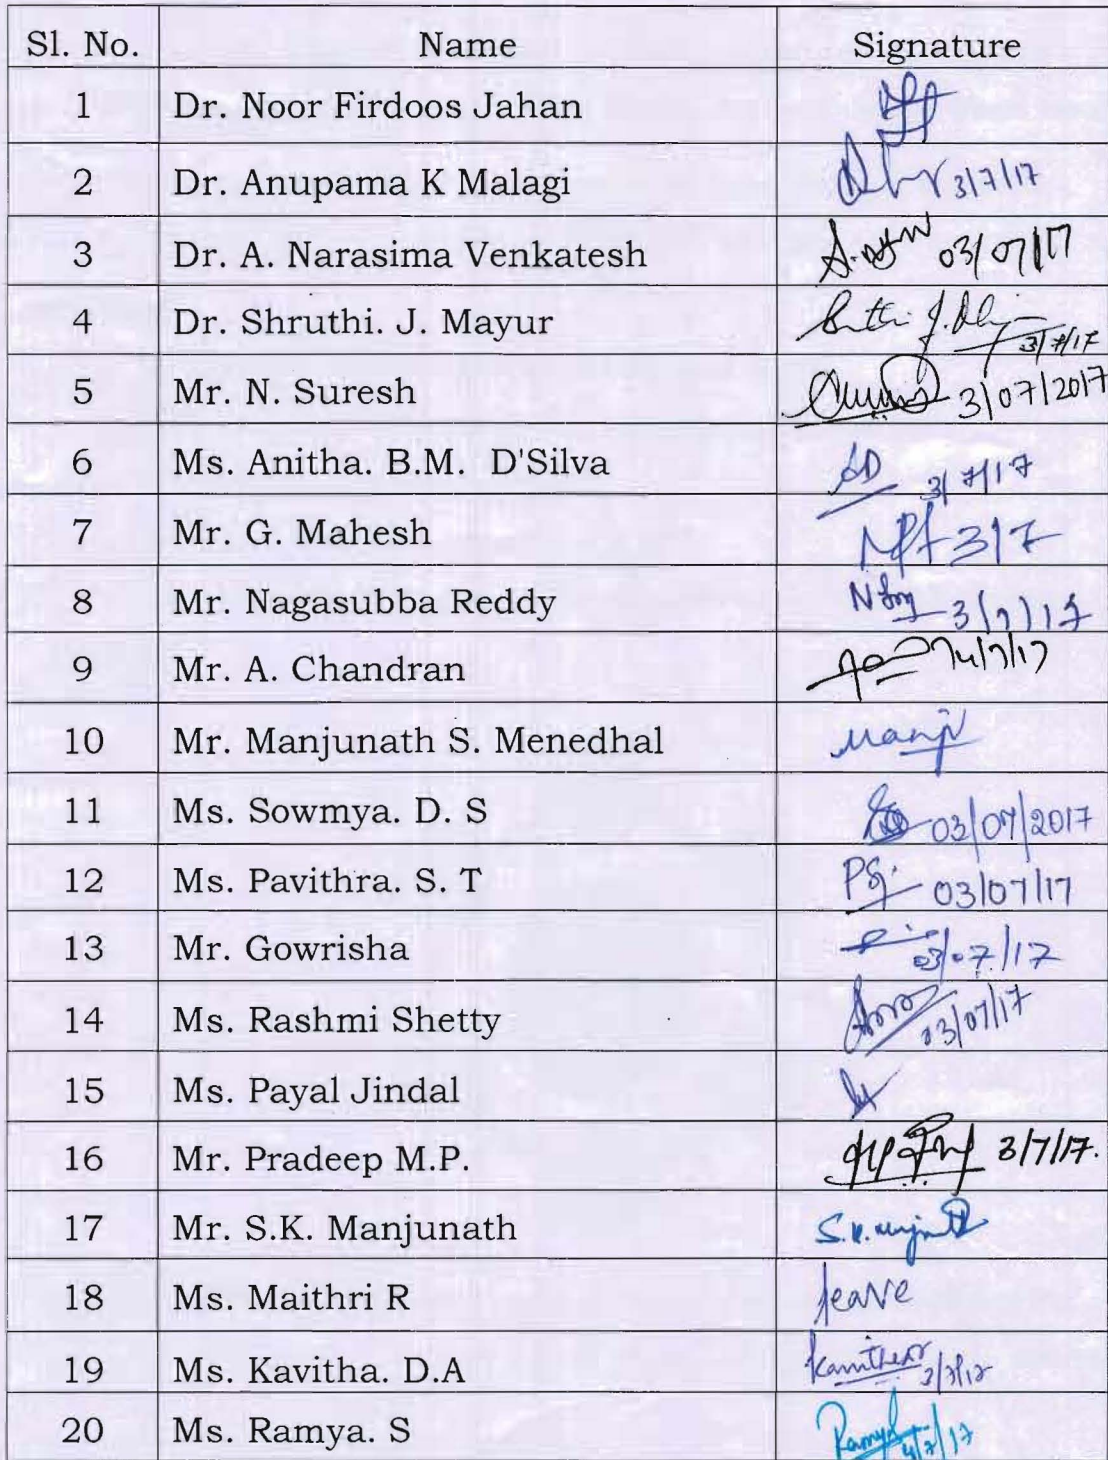 Sl. No. Name Signature
1 Dr. Noor Firdoos Jahan
2 Dr. Anupama K Malagi 3/7/17
3 Dr. A. Narasima Venkatesh 03/07/17
4 Dr. Shruthi. J. Mayur 3/7/17
5 Mr. N. Suresh 3/07/2017
6 Ms. Anitha. B.M. D'Silva 3/7/17
7 Mr. G. Mahesh 3/7
8 Mr. Nagasubba Reddy 3/7/17
9 Mr. A. Chandran 4/7/17
10 Mr. Manjunath S. Menedhal Manju
11 Ms. Sowmya. D. S 03/07/2017
12 Ms. Pavithra. S. T 03/07/17
13 Mr. Gowrisha 03/07/17
14 Ms. Rashmi Shetty 03/07/17
15 Ms. Payal Jindal
16 Mr. Pradeep M.P. 3/7/17.
17 Mr. S.K. Manjunath
18 Ms. Maithri R leave
19 Ms. Kavitha. D.A 3/7/17
20 Ms. Ramya. S 4/7/17